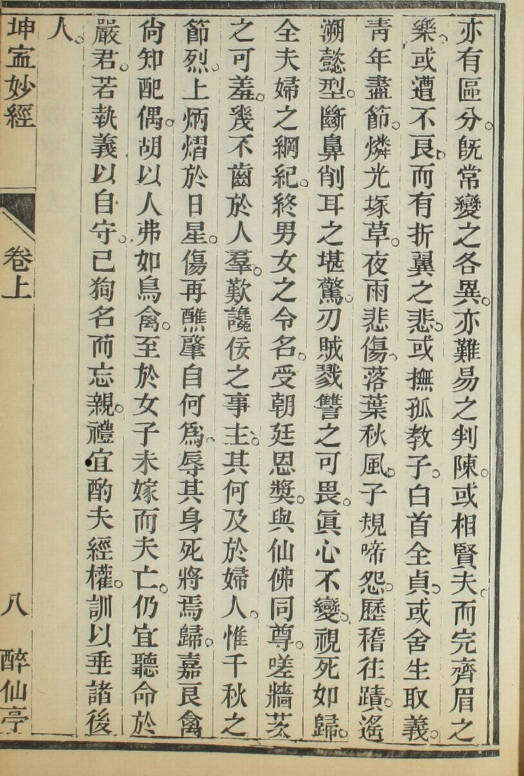 亦有區分。旣常變之各異。亦難易之判陳。或相賢夫。而完齊眉之
樂。或遭不良。而有折翼之悲。或撫孤教子。白首全貞。或舍生取義。
靑年盡節。燐光塚草。夜雨悲傷。落葉秋風。子規啼怨。歷稽往蹟。遙
溯懿型。斷鼻削耳之堪驚。刃賊戮讐之可畏。眞心不變。視死如歸。
全夫婦之綱紀。終男女之令名。受朝廷恩獎。與仙佛同尊。嗟牆茨
之可羞。幾不齒於人羣。歎讒佞之事主。其何及於婦人。惟千秋之
節烈。上炳熠於日星。傷再醮肇自何爲。辱其身死將焉歸。嘉良禽
尙知配偶。胡以人弗如鳥禽。至於女子未嫁而夫亡。仍宜聽命於
嚴君。若執義以自守。已狥名而忘親。禮宜酌夫經權。訓以垂諸後
人。
坤寍妙經 卷上 八 醉仙亭